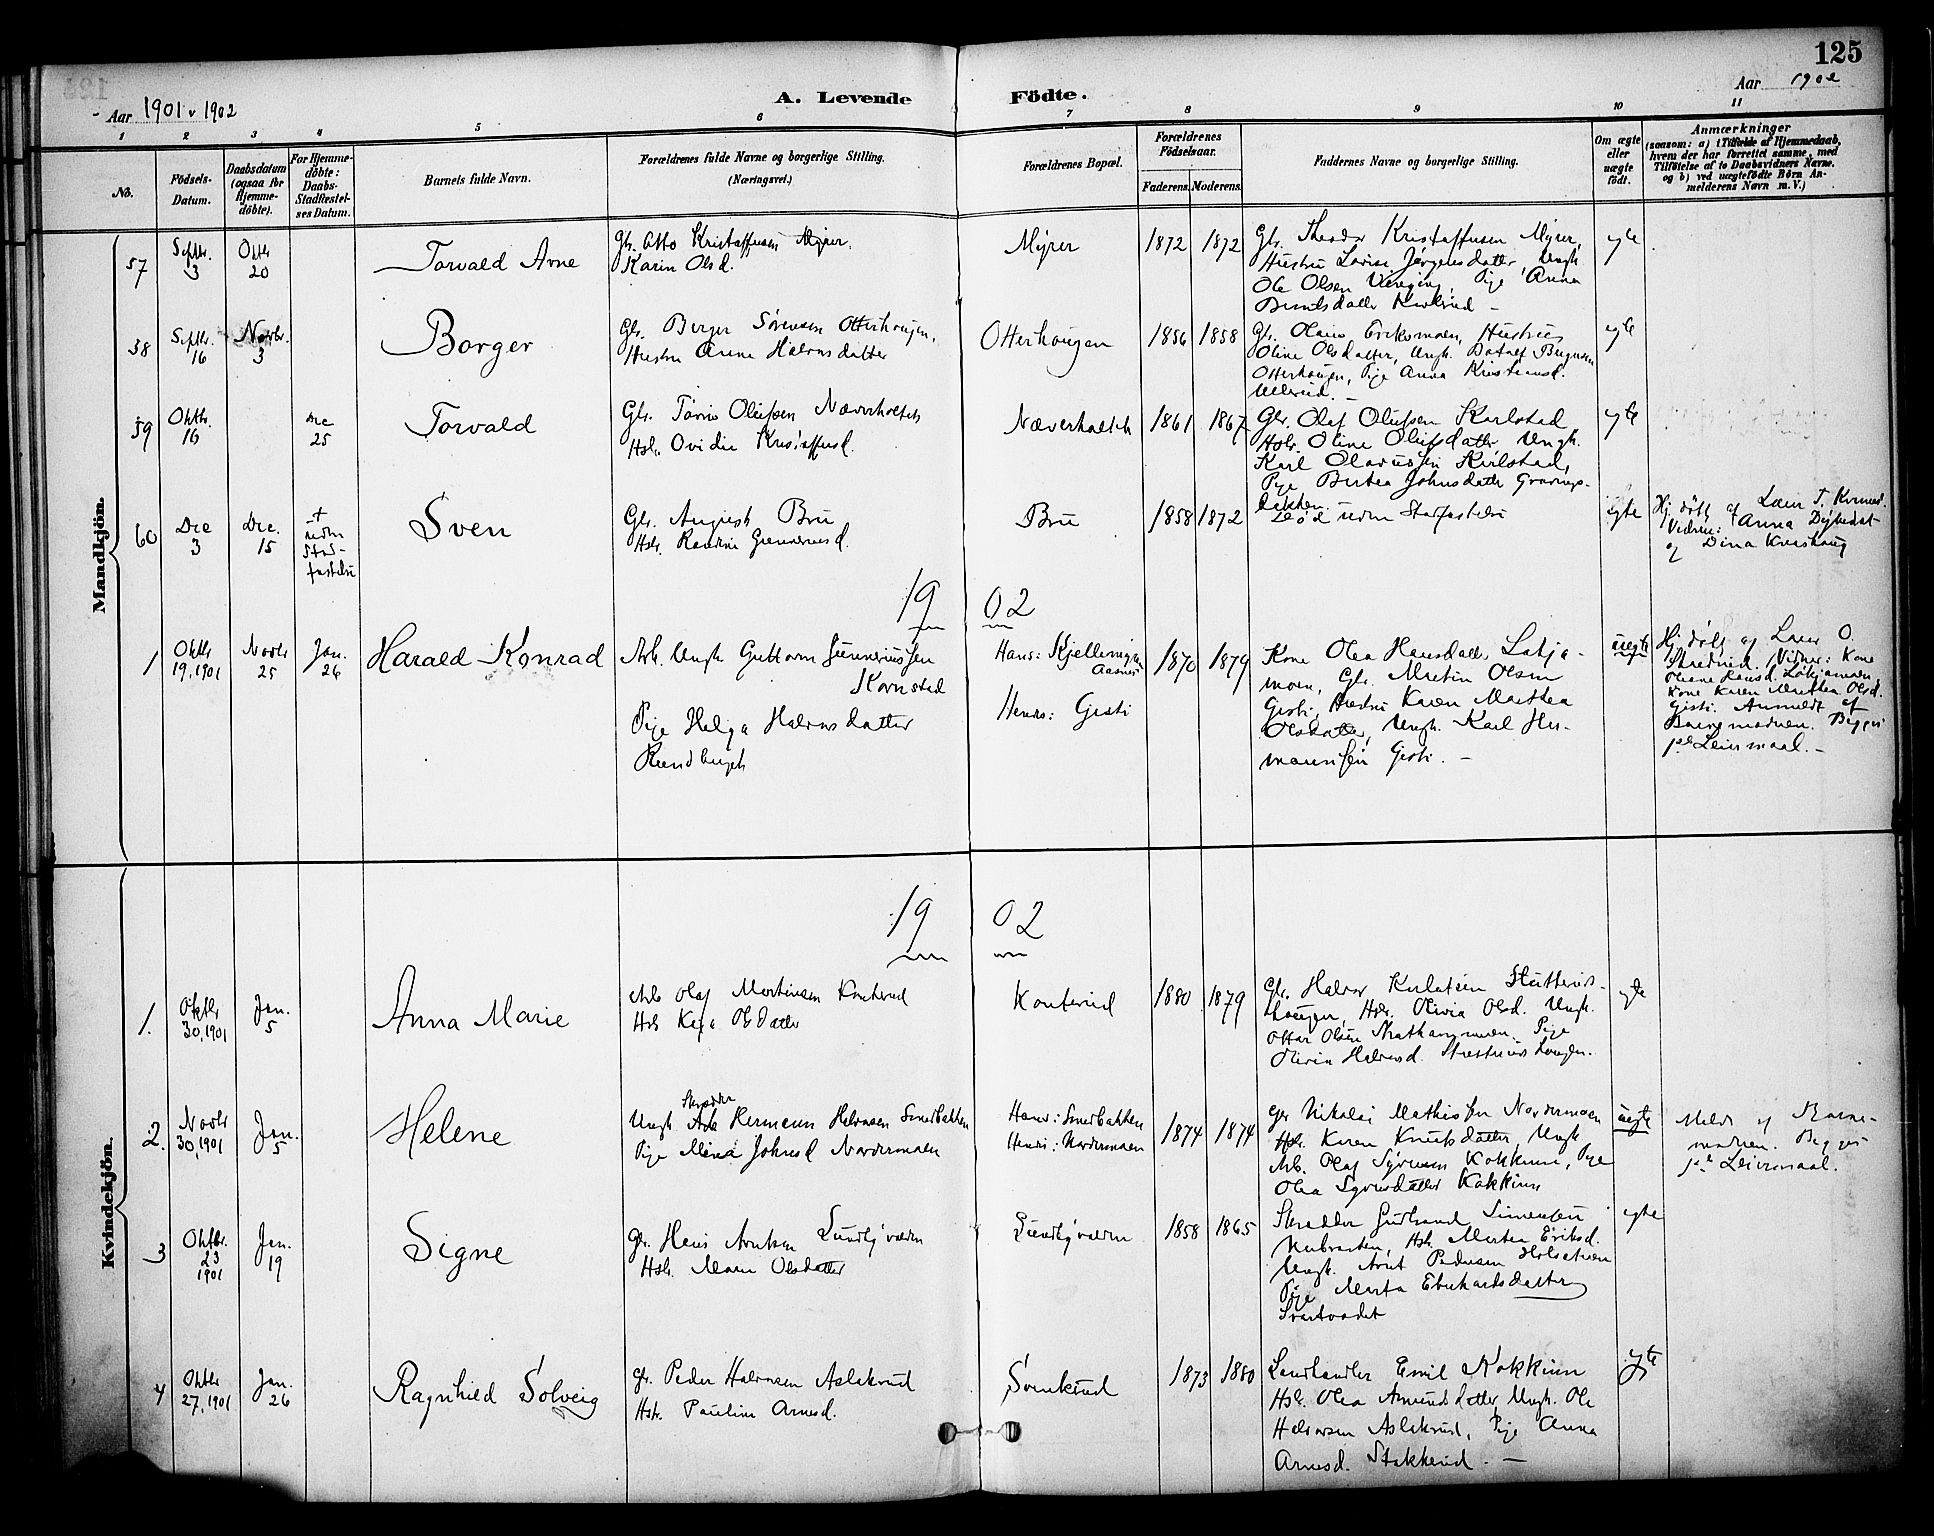 125
Aar 1901 & 1902
A. Levende Födte.
Aar 1902
1 2 3 4 5 6 7 8 9 10 11
No.
Födsels-Datum.
Daabsdatum (ogsaa for Hjemme-döbte).
For Hjemme-döbte: Daabs-Stadfæstel-ses Datum.
Barnets fulde Navn.
Forældrenes fulde Navne og borgerlige Stilling.
(Næringsvei.)
Forældrenes Bopæl.
Forældrenes Födselsaar.
Faderens. Moderens.
Faddernes Navne og borgerlige Stilling.
Om ægte eller uægte födt.
Anmærkninger
(saasom: a) i Tilfælde af Hjemmedaab, hvem der har forrettet samme, med Tilföielse af to Daabsvidners Navne, og b) ved uægtefödte Börn An-melderens Navn m. V.)
Mandkjön.
57
Septbr. 3
Oktbr 20
Torvald Arne
Gbr. Otto Kristoffersen Myrer.
Karin Olsd.
Myrer
1872 1872
Gbr. Theodor Kristoffersen Myrer,
Hustru Lovise Jörgensdatter, Ungk.
Ole Olsen Pige Anna
ægte
58
Septbr. 16
Novbr. 3
Borger
Gbr. Berger Sörensen Otterhougen,
Hustru Anne Halvorsdatter
Otterhougen
1856 1858
Gbr. Olaus Eriksmoen, Hustru
Oline Olsdatter, Ungk.
Otterhougen, Pige Anna Kristiansd.
ægte
59
Oktbr. 16
Dec 25
Torvald
Gbr. Olufsen Næverholtet
Hstr. Ovidie Kristoffersd.
Næverholtet
1861 1867
Gbr. Olaf Olufsen Karlstad
Hstr. Oline Olufsdatter Ungk.
Karl Olavussen Karlstad,
Pige Bertea Johnsdatter
ægte
60
Dec 3
Dec. 15
+ uden Stad-fæstelse
Sven
Gbr. August Bru
Hstr. Gunnerusd.
Bru
1858 1872
Död uden Stadfæstelse
ægte
Hj.döbt af Lærer T.
Vidner: Anna
og Dina
1902
1
Oktbr 19, 1901
Novbr 25
Jan. 26
Harald Konrad
Arb. Ungk Guttorm Gunnerussen
Kornstad
Pige Helga Halvorsdatter
Hans: Aasnes
Hendes: Gjesti
1870 1879
Kone Olea Hansdatter,
moen, Gbr. Martin Olsen
Gjesti, Hustru Karen Marthea
Olsdatter, Ungk. Karl Her-
manssen Gjesti. —
uægte
Hj.döbt af Lærer O.
Vidner: Kone
Kone Karen Marthea Olsd.
Gjesti. Anmeldt af
Barnemoderen. Begges
1ste Leiermaal. —
Kvindekjön.
1902
1.
Oktbr 30, 1901
Jan. 5
Anna Marie
Arb. Olaf Martinsen Konterud
Hstr Olsdatter
Konterud
1880 1879
Gbr. Halvor
Hstr. Olivia Olsd. Ungk.
Ottar Olsen Pige
Olivia Halvorsd.
ægte
2.
Novbr 30, 1901
Jan. 5
Helene
Skrædder
Ungk Arb Hermann Halvorsen Smedbakken
Pige Mina Johnsd Nordermoen
Hans: Smedbakken
Hendes: Nordermoen
1874 1874
Gbr Nikolai Mathissen Nordermoen
Hstr. Karen Knutsdatter, Ungk.
Arb. Olaf Syversen Kokkinn, Pige
Olea Syversdatter Kokkinn
uægte
Meldt af Barne-
moderen. Begges
1ste Leiermaal.
3
Oktbr. 23 1901
Jan. 19
Signe
Gbr. Hans Arntsen Lundbyvolden
Hstr. Maren Olsdatter
Lundbyvolden
1858 1865
Skrædder Gudbrand Simensen
Hstr. Marten Eriksd.
Ungk. Arnt Pedersen
Pige Marta Eberhardsdatter
ægte
4
Oktbr 27, 1901
Jan. 26
Ragnhild Solveig
Gbr. Peder Halvorsen Aslakrud
Hstr. Pauline Arnesd.
1873 1880
Landhandler Emil Kokkinn
Hstr. Olea Amundsdatter, Ungk. Ole
Halvorsen Aslakrud, Pige Anna
Arnesd. Stakkerud. —
ægte